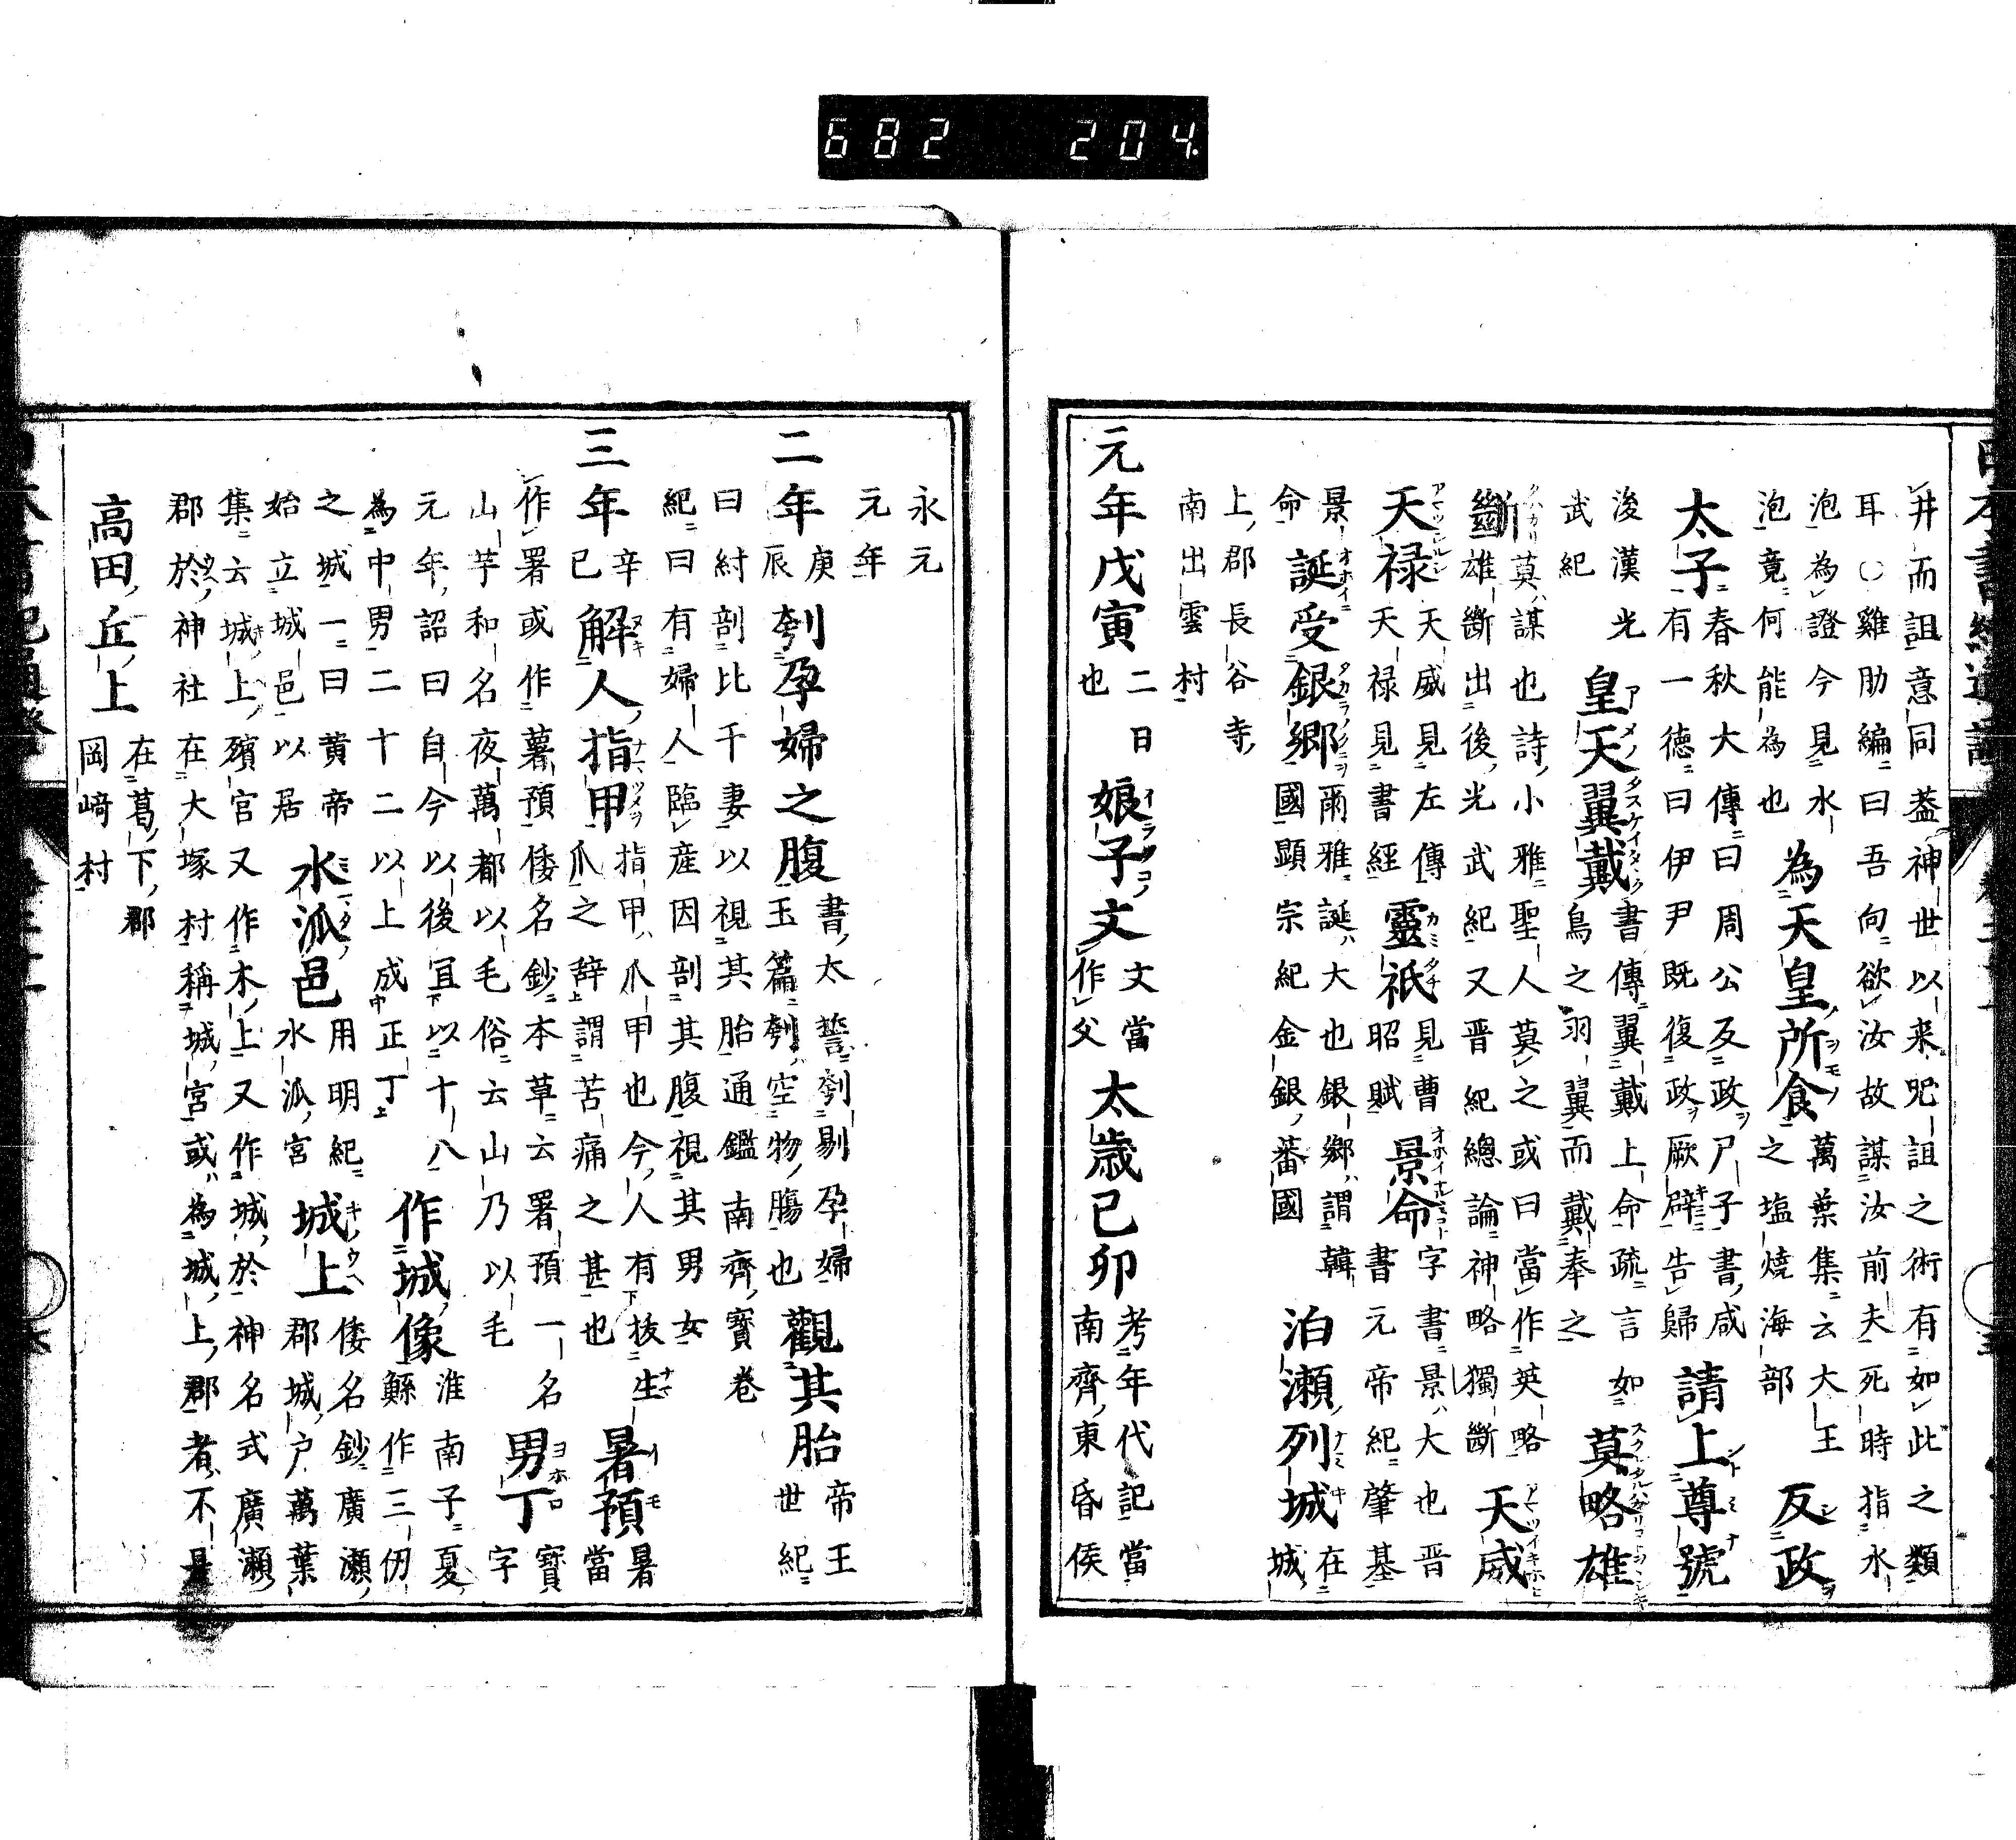 682 204
井而詛意同葢神世以来呪詛之術有如此之類
耳〇雞肋編曰吾向欲汝故謀汝前夫死時指水
泡為證今見水
泡竟何能為也
為天皇所食
萬葉集云大王
之塩燒海部
反政
太子
春秋大傳曰周公反政尸子書咸
有一徳曰伊尹既復政厥辟告歸
請上尊號
如
浚漢光
武紀
皇天翼戴
書傳翼戴上命疏言
鳥之羽翼而戴奉之
莫略雄
斷
莫謀也詩小雅聖人莫之或曰當作英略
雄斷出後光武紀又晋紀總論神略獨斷
天威
天禄
天威見左傳
天禄見書經
靈祇
見曹
昭賦
景命
字書景大也晋
書元帝紀肇基
景
命
誕受銀郷
爾雅誕大也銀郷謂韓
國顯宗紀金銀蕃國
泊瀬列城
在
城
上郡長谷寺
南出雲村
元年戊寅
二日
也
娘子文
文當
作父
太歳己卯
考年代記當
南齊東昏侯
永元
元年
二年
庚
辰
刳孕婦之腹
書太誓刳剔孕婦
玉篇刳空物膓也
觀其胎
帝王
世紀
曰紂剖比干妻以視其胎通鑑南齊寳卷
紀曰有婦人臨產因剖其腹視其男女
三年
辛
巳
解人指甲
指甲爪甲也今人有抜生
爪之辞謂苦痛之甚也
暑預
暑
當
作署或作薯預倭名鈔本草云署預一名
山芋和名夜萬都以毛俗云山乃以毛
男丁
寳
字
元年詔曰自今以後冝以十八
為中男二十二以上成正丁
作城像
淮南子夏
鯀作三仞
之城一曰黄帝
始立城邑以居
水泒邑
用明紀
水泒宮
城上
倭名鈔廣瀬
郡城戸萬葉
集云城上殯宮又作木上又作城於神名式廣瀬
郡於神社在大塚村稱城宮或為城上郡者不是
高田丘上
在葛下郡
岡﨑村